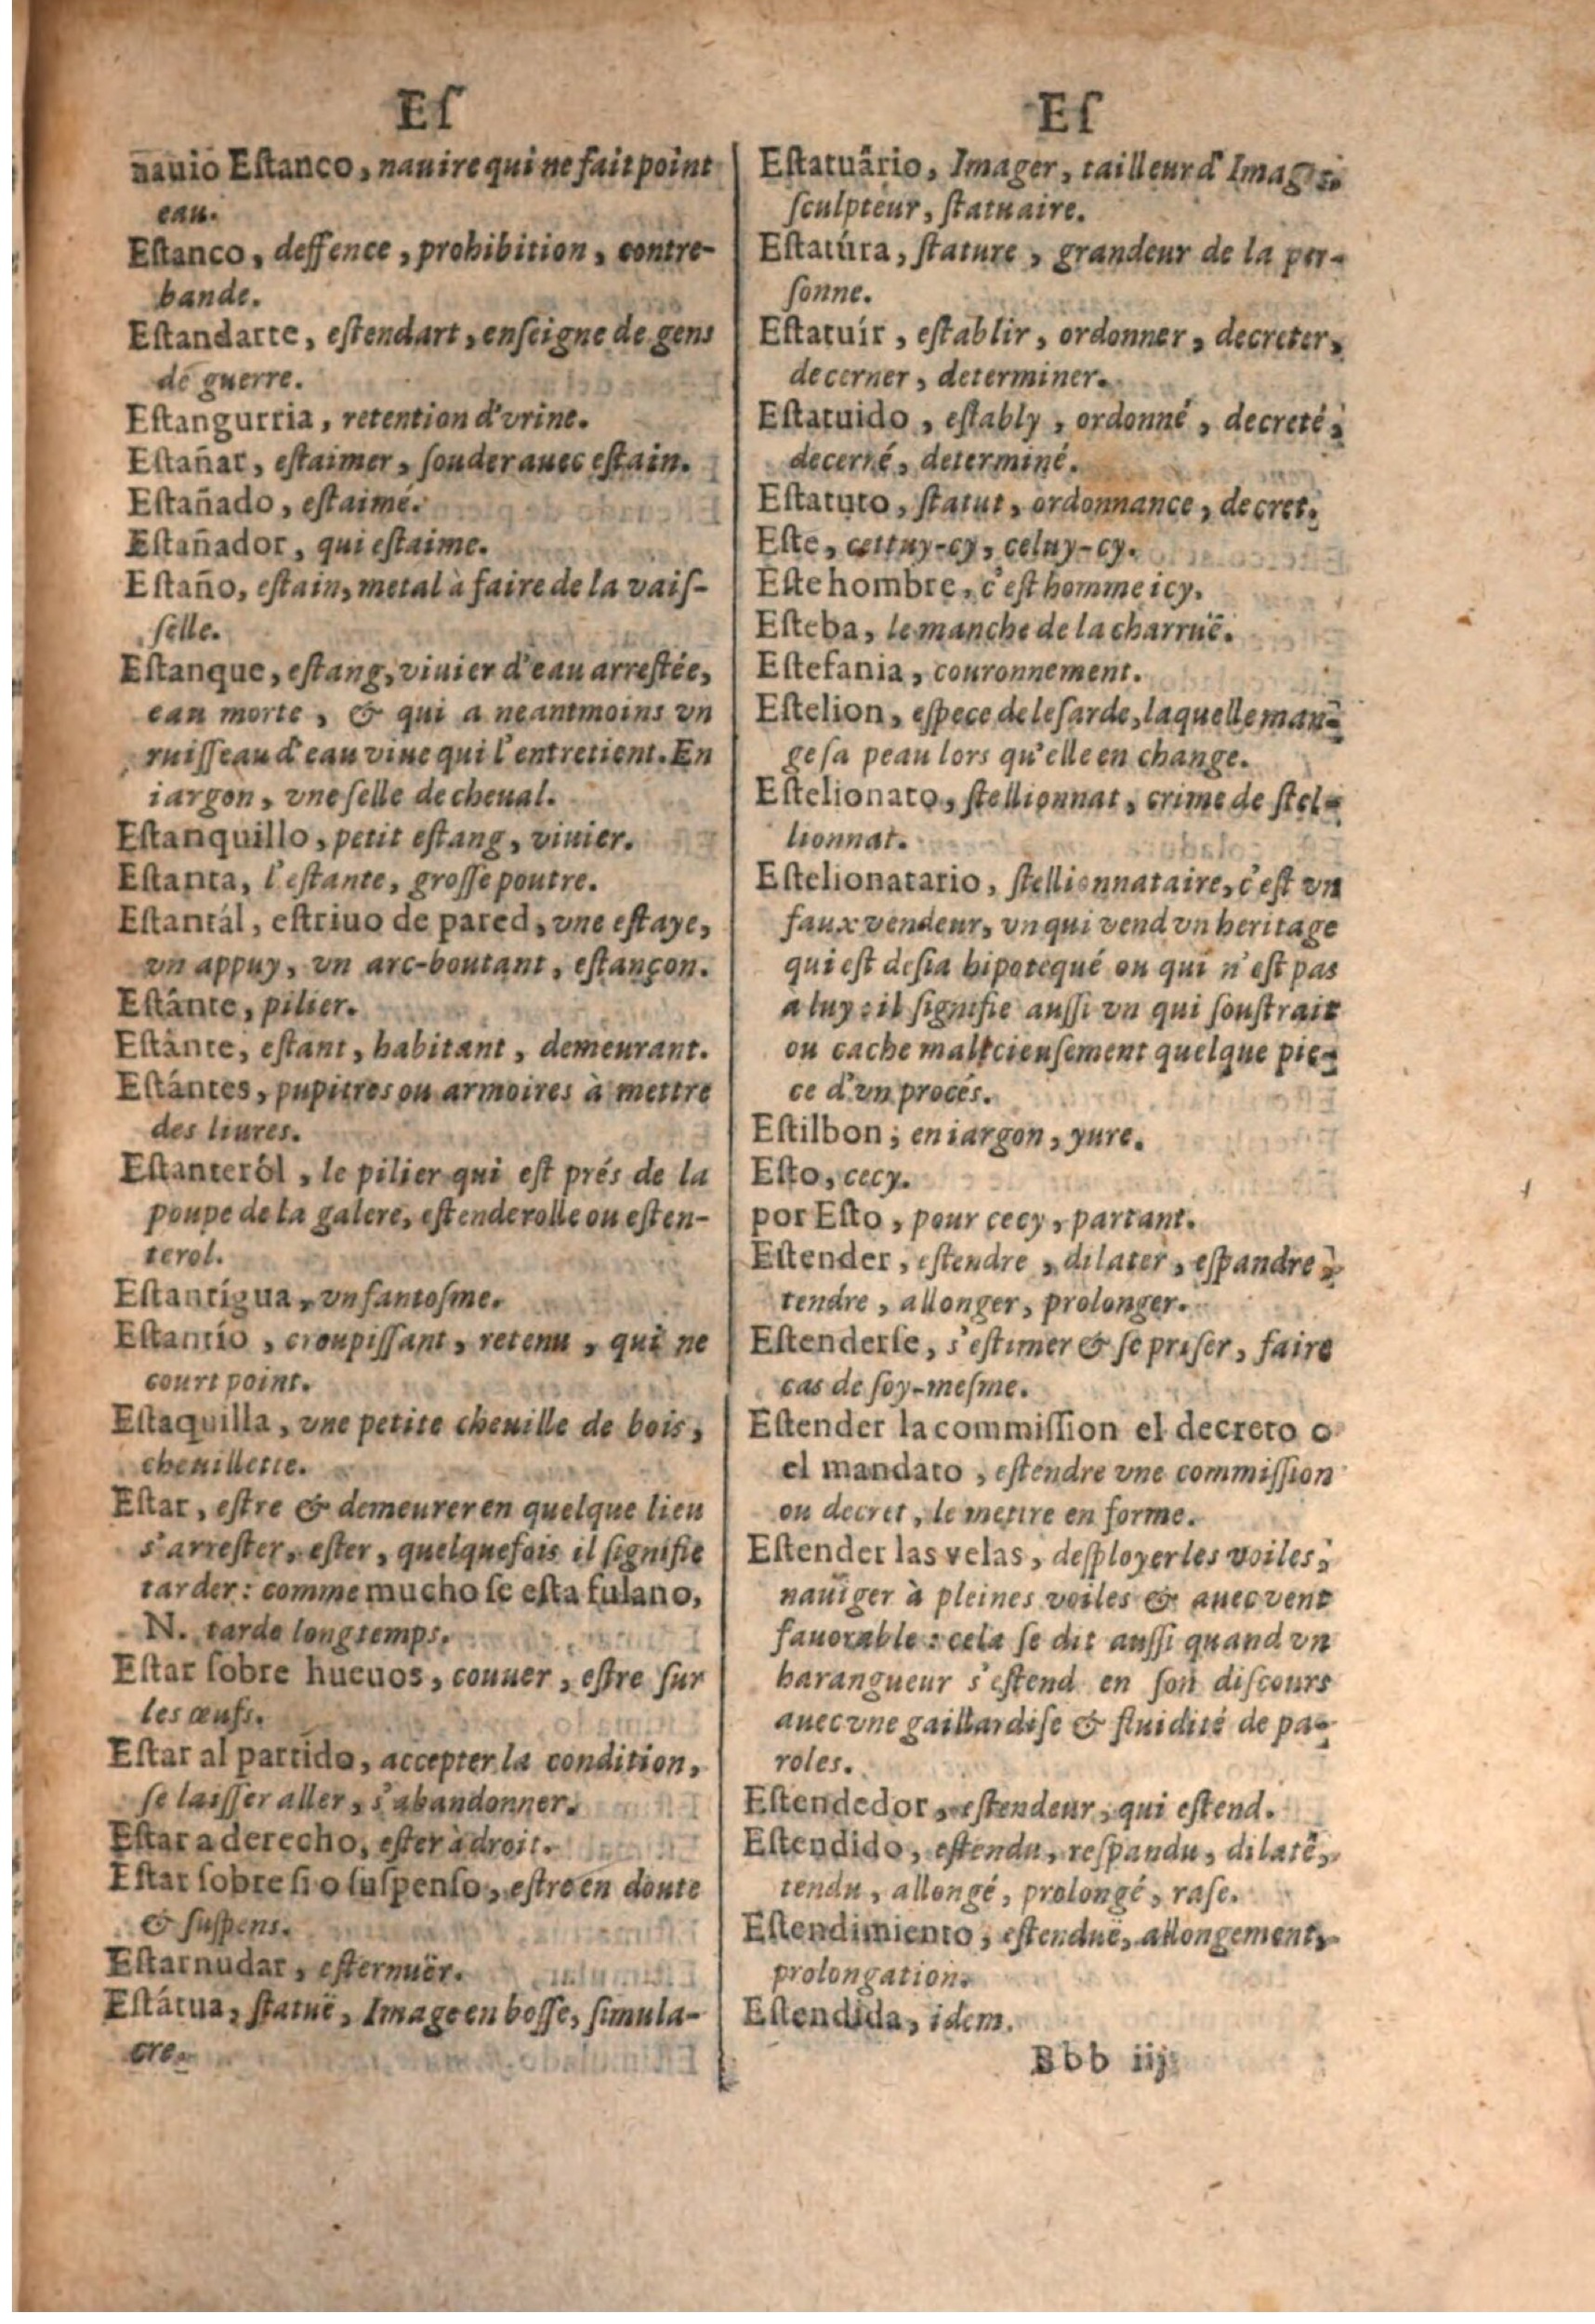 Eſ
nauio Eſtanco, nauire qui ne fait point
eau.
Eſtanco, deffence, prohibition, contre-
bande.
Eſtandarte, eſtendart, enſeigne de gens
de guerre.
Eſtangurria, retention d'vrine.
Eſtañar, eſtaimer, ſouder auec eſtain.
Eſtañado, eſtaimé.
Eſtañador, qui eſtaime.
Eſtaño, eſtain, metal à faire de la vaiſ-
ſelle.
Eſtanque, eſtang, viuier d'eau arreſtée,
eau morte, & qui a neantmoins vn
ruiſſeau d'eau viue qui l'entretient. En
iargon, vne ſelle de cheual.
Eſtanquillo, petit eſtang, viuier.
Eſtanta, l'eſtante, groſſe poutre.
Eſtantál, eſtriuo de pared, vne eſtaye,
vn appuy, vn arc-boutant, eſtançon.
Eſtânte, pilier.
Eſtânte, eſtant, habitant, demeurant.
Eſtántes, pupitres ou armoires à mettre
des liures.
Eſtanteról, le pilier qui eſt prés de la
poupe de la galere, eſtenderolle ou eſten-
terol.
Eſtantígua, vn fantoſme.
Eſtantío, croupiſſant, retenu, qui ne
court point.
Eſtaquilla, vne petite cheuille de bois,
cheuillette.
Eſtar, eſtre & demeurer en quelque lieu
s'arreſter, eſter, quelquefois il ſignifie
tarder: comme mucho ſe eſta fulano,
N. tarde long temps.
Eſtar ſobre hueuos, couuer, eſtre ſur
les œufs.
Eſtar al partido, accepter la condition,
ſe laiſſer aller, s'abandonner.
Eſtar a derecho, eſter à droit.
Eſtar ſobre ſi o ſuſpenſo, eſtre en doute
& ſuſpens.
Eſtarnudar, eſternuër.
Eſtâtua, ſtatuë, Image en boſſe, ſimula-
cre.
Eſ
Eſtatuârio, Imager, tailleur d'Images
ſculpteur, ſtatuaire.
Eſtatúra, ſtature, grandeur de la per-
ſonne.
Eſtatuír, eſtablir, ordonner, decreter,
decerner, determiner.
Eſtatuido, eſtably, ordonné, decreté,
decerné, determiné.
Eſtatuto, ſtatut, ordonnance, decret.
Eſte, cettuy-cy, celuy-cy.
Eſte hombre, c'eſt homme icy.
Eſteba, le manche de la charruë.
Eſtefania, couronnement.
Eſtelion, eſpece de leſarde, laquelle man-
ge ſa peau lors qu'elle en change.
Eſtelionato, ſtellionnat, crime de ſtel-
lionnat.
Eſtelionatario, ſtellionnataire, c'eſt vn
faux vendeur, vn qui vend vn heritage
qui eſt deſia hipotequé ou qui n'eſt pas
à luy: il ſignifie auſſi vn qui ſouſtrait
ou cache malicieuſement quelque pie-
ce d'vn procés.
Eſtilbon; en iargon, yure.
Eſto, cecy.
por Eſto, pour cecy, partant.
Eſtender, eſtendre, dilater, eſpandre,
tendre, allonger, prolonger.
Eſtenderſe, s'eſtimer & ſe priſer, faire
cas de ſoy-meſme.
Eſtender la commiſſion el decreto o
el mandato, eſtendre vne commiſſion
ou decret, le mettre en forme.
Eſtender las velas, deſployer les voiles,
nauiger à pleines voiles & auec vent
fauorable: cela ſe dit auſſi quand vn
harangueur s'eſtend en ſon diſcours
auec vne gaillardiſe & fluidité de pa-
roles.
Eſtendedor, eſtendeur, qui eſtend.
Eſtendido, eſtendu, reſpandu, dilaté,
tendu, allongé, prolongé, raſe.
Eſtendimiento, eſtenduë, allongement,
prolongation.
Eſtendida, idem.
Bbb iij